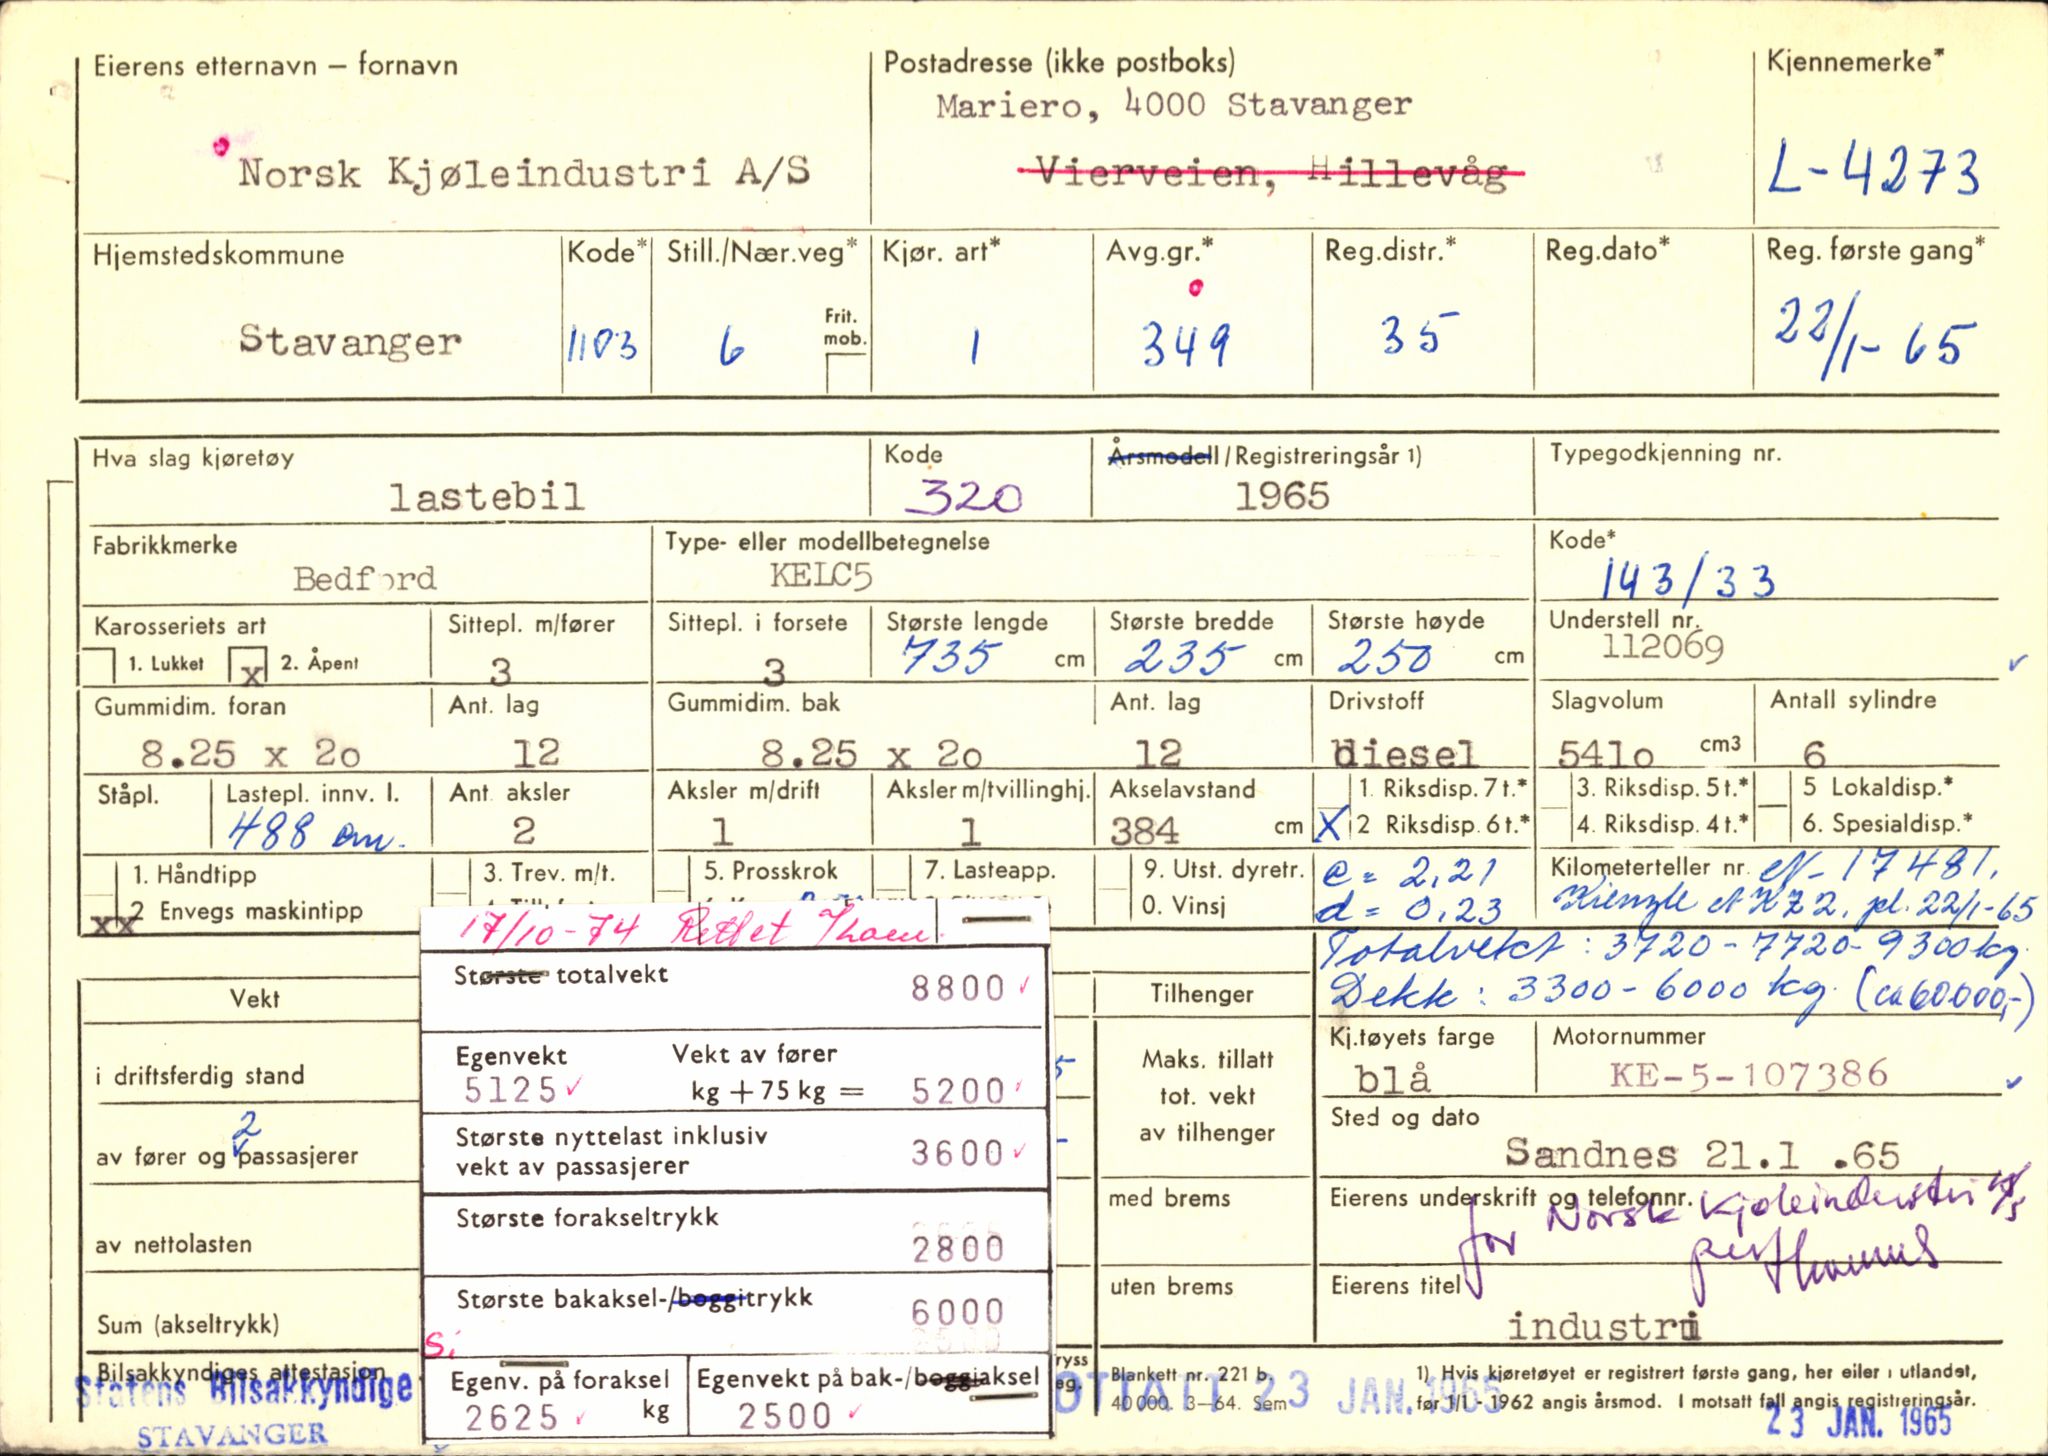 Eierens etternavn – fornavn
Norsk Kjøleindustri A/S
Postadresse (ikke postboks)
Mariero, 4000 Stavanger
Vierveien, Hillevåg
Kjennemerke*
L-4273
Hjemstedskommune
Stavanger
Kode*
1103
Still./Nær.veg*
6
Frit. mob.
Kjør. art*
1
Avg.gr.*
349
Reg.distr.*
35
Reg.dato*
Reg. første gang*
22/1-65
Hva slag kjøretøy
lastebil
Kode
320
Årsmodell/Registreringsår 1)
1965
Typegodkjenning nr.
Fabrikkmerke
Bedford
Type- eller modellbetegnelse
KELC5
Kode*
143/33
Karosseriets art
1. Lukket x 2. Åpent
Sittepl. m/fører
3
Sittepl. i forsete
3
Største lengde
735 cm
Største bredde
235 cm
Største høyde
250 cm
Understell nr.
112069
Gummidim. foran
8.25 x 2o
Ant. lag
12
Gummidim. bak
8.25 x 2o
Ant. lag
12
Drivstoff
diesel
Slagvolum
541o cm3
Antall sylindre
6
Ståpl.
Lastepl. innv. l.
488 cm.
Ant. aksler
2
Aksler m/drift
1
Aksler m/tvillinghj.
1
Akselavstand
384 cm
1. Riksdisp. 7 t.*
X 2 Riksdisp. 6 t.*
3. Riksdisp. 5 t.*
4. Riksdisp. 4 t.*
5 Lokaldisp.*
6. Spesialdisp.*
1. Håndtipp
xx 2 Envegs maskintipp
3. Trev. m/t.
5. Prosskrok
7. Lasteapp.
9. Utst. dyretr.
0. Vinsj
e = 2,21
d = 0,23
Kilometerteller nr. N- 17481.
Kienzle KZ2, pl. 22/1-65
Totalvekt: 3720-7720-9300 kg.
Dekk: 3300-6000 kg. (ca 60000,-)
17/10-74 Rettet
Største totalvekt
8800
Egenvekt Vekt av fører
5125 kg + 75 kg = 5200
Største nyttelast inklusiv
vekt av passasjerer 3600
Største forakseltrykk
2800
Største bakaksel-/boggitrykk
6000
Si
Egenv. på foraksel
2625 kg
Egenvekt på bak-/boggiaksel
2500
Vekt
i driftsferdig stand
2
av fører og passasjerer
av nettolasten
Sum (akseltrykk)
Tilhenger
Maks. tillatt
tot. vekt
av tilhenger
med brems
uten brems
Kj.tøyets farge
blå
Motornummer
KE-5-107386
Sted og dato
Sandnes 21.1 .65
Eierens underskrift og telefonnr.
for Norsk Kjøleindustri A/S
Eierens titel
industri
Bilsakkyndiges attestasjon
Statens Bilsakkyndige
STAVANGER
Blankett nr. 221 b.
40 000. 3–64. Sem
OTTATT 23 JAN. 1965
1) Hvis kjøretøyet er registrert første gang, her eller i utlandet,
før 1/1 - 1962 angis årsmod. I motsatt fall angis registreringsår.
23 JAN. 1965